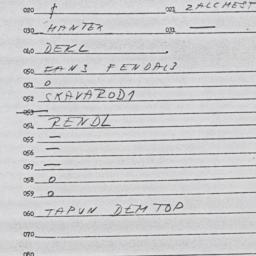 020 $ 021 ZALCHEST
030 MANTEX 031 —
040 DEKL
050 FAN3 FENDAL3
051 0
052 SKAVAROD1
053 —
054 RENDL
055 —
056 —
057 —
058 0
059 0
060 TAPUN DEMTOP
070
080